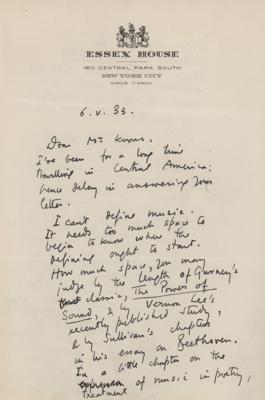 ESSEX HOUSE
160 CENTRAL PARK SOUTH
NEW YORK CITY
CIRCLE 7-0300
6. v. 33.
Dear Mr
I've been for a long time
travelling in Central America:
hence delay in answering your
letter.
I can't define music.
It needs too much space to
begin to know where the
defining ought to start.
How much space, you may
judge by the length of Gurney's
classic, The Power of
Sound, & by Vernon Lee's
recently published study,
& by Sullivan's chapters
in his essay on Beethoven.
In a little chapter on the
treatment of music in poetry,